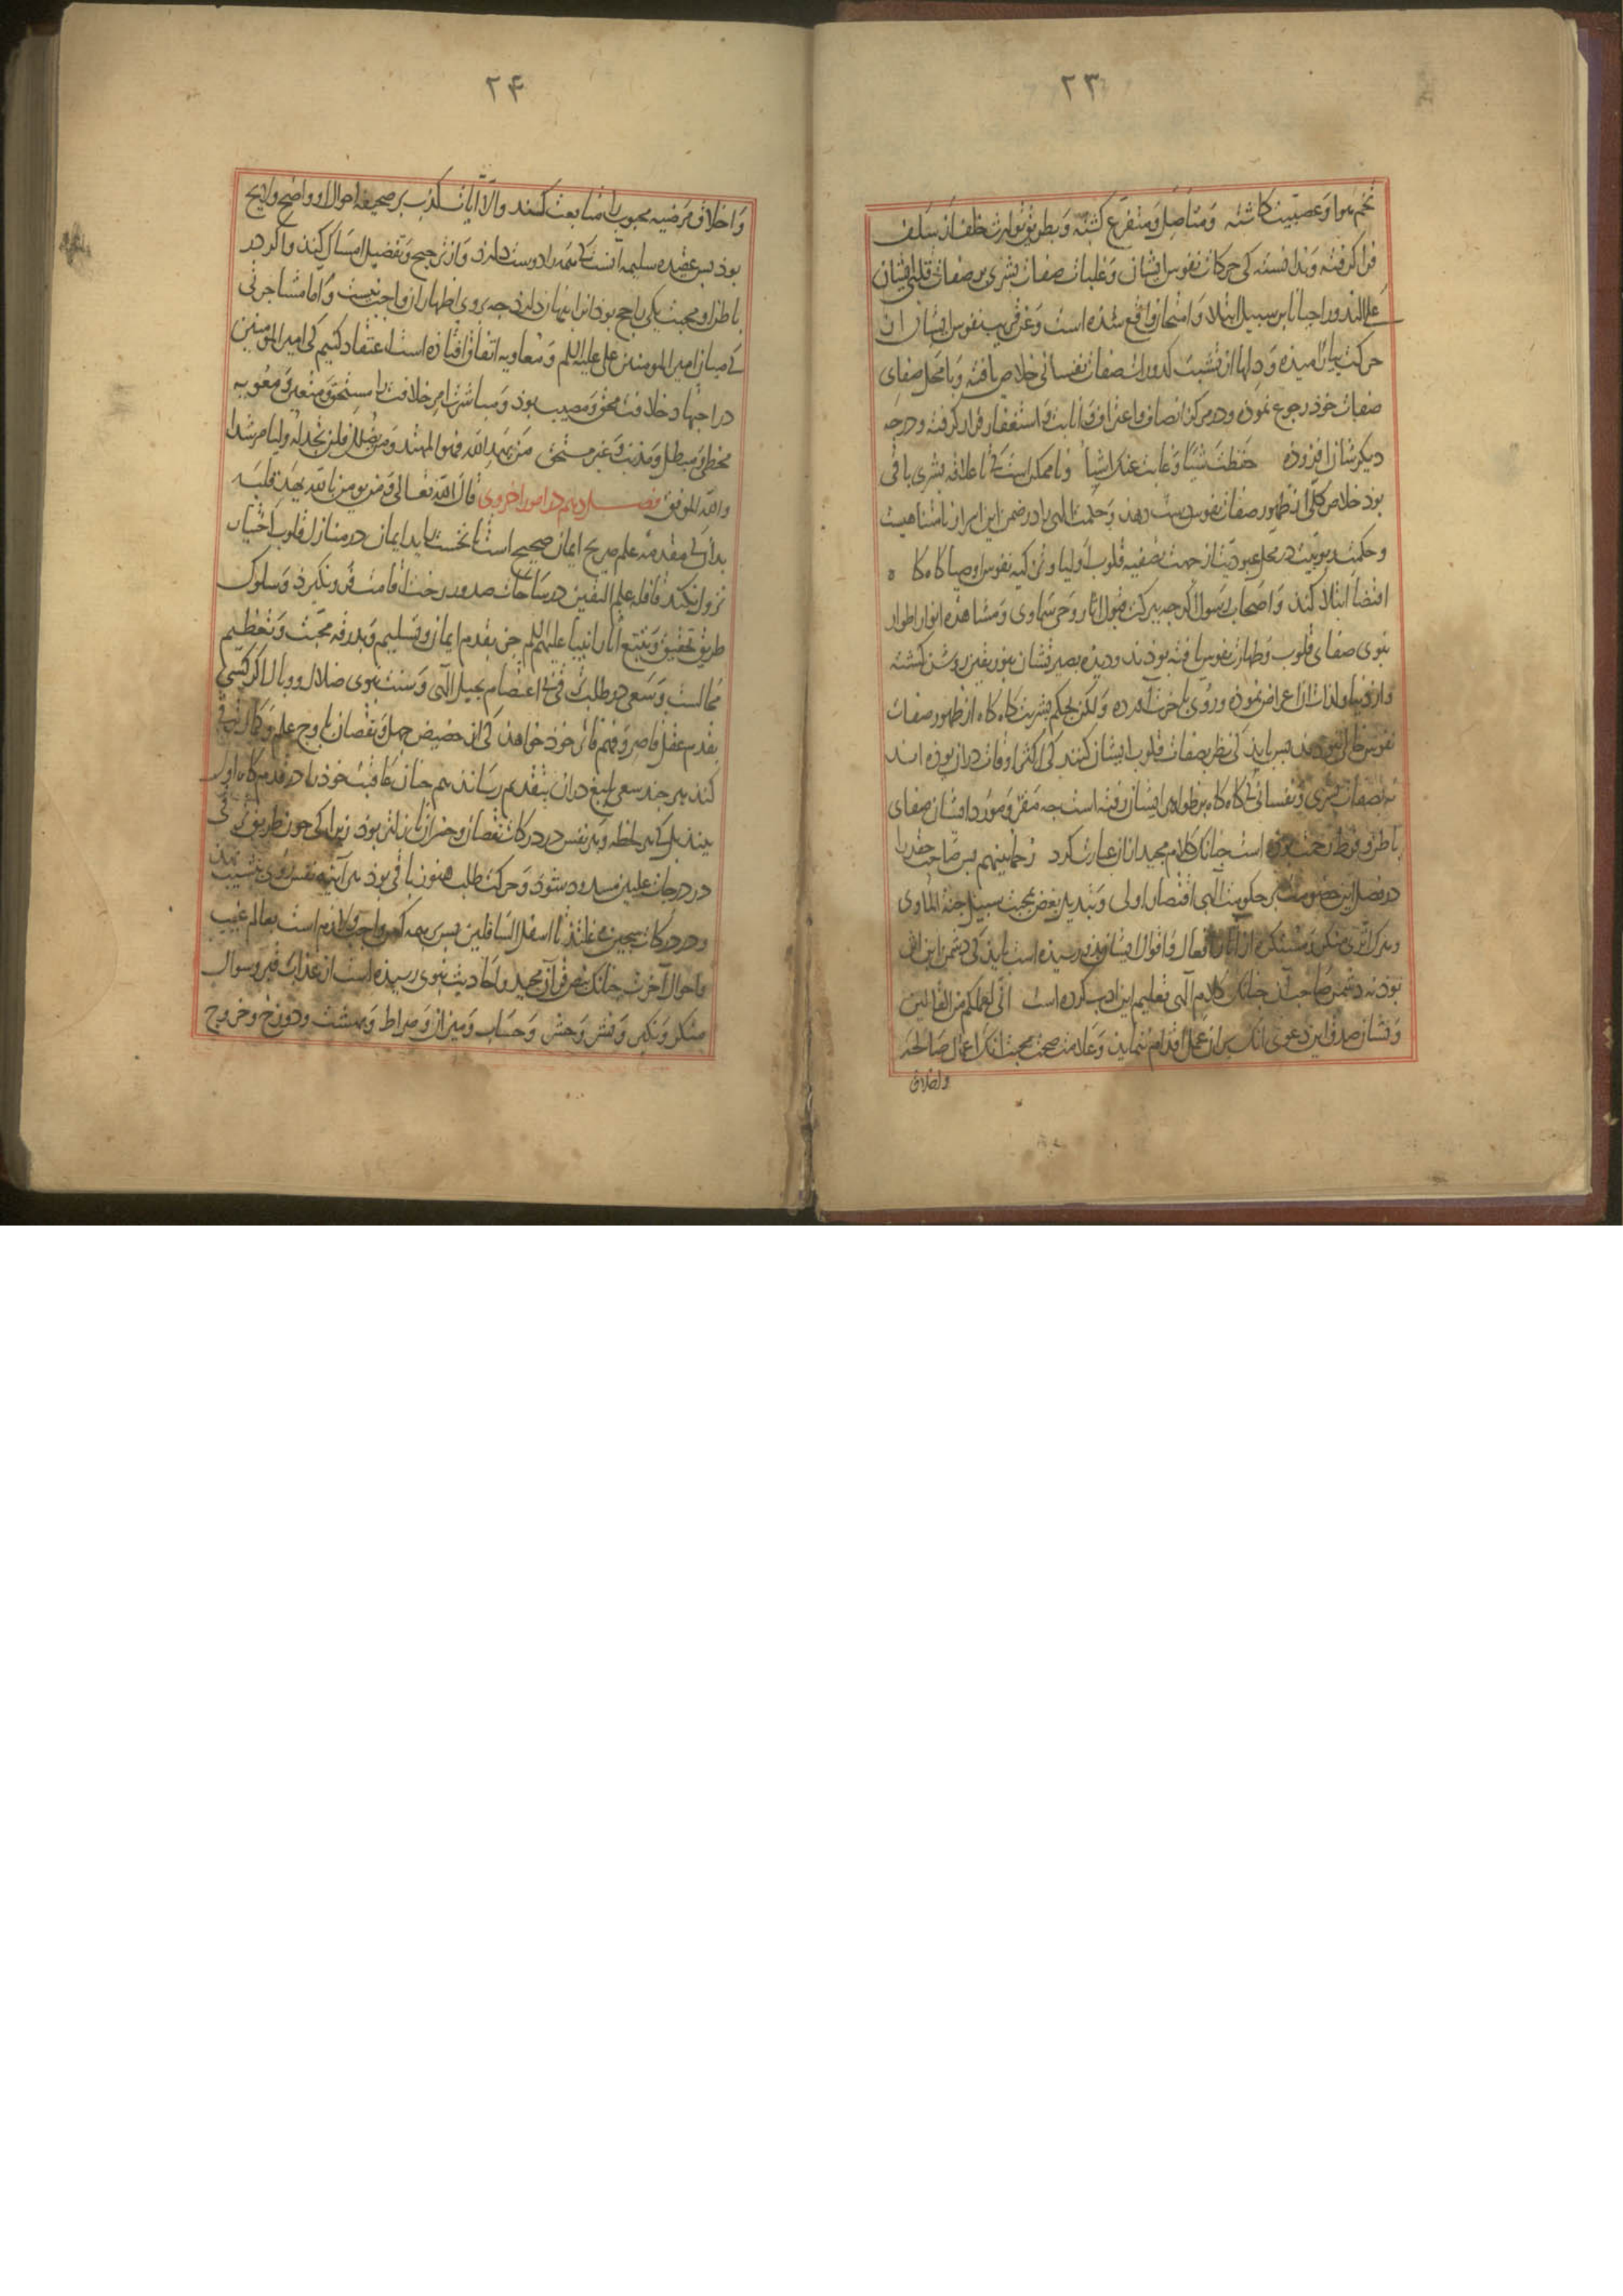 ۲۳
تخم هوا و عصبیّت کاشته و متاصل و متفرّع کشته و بطریق توارث خلف از سلف
فرا کرفته و ندانسته کی حرکات نفوس ایشان و غلبات صفات بشری بر صفات قلبی ایشان
علی الندور احیانا بر سبیل ابتلا و امتحان واقع شده است و عن قریب نفوس ایشان از ان
حرکت بیارامیده و دلها از تشبث کدورات صفات نفسانی خلاص یافته و با محل صفای
صفات خود رجوع نموده و در مرکز انصاف و اعتراف و انابت و استغفار قرار کرفته و درجه
دیکرشان افزوده حفظت شیئا و غابت عنک اشیا و ناممکن است کی تا علاقه بشری باقی
بود خلاص کلی از ظهور صفات نفوس دست دهد و حکمت الهی را در ضمن این اسرار نامتناهیست
و حکمت ربوبیت در محل عبودیت از جهت تصفیه قلوب اولیا و تزکیه نفوس اوصیا کاه کاه
اقتضا ابتلا کند و اصحاب رسول اکرچه ببرکت قبول آثار وحی سماوی و مشاهده انوار اطوار
نبوی صفای قلوب و طهارت نفوس یافته بودند و دیده بصیرتشان بنور یقین روشن کشته
و از دنیا و لذات ان اعراض نموده و روی باخرت آورده و لکن بحکم بشریت کاه کاه از ظهور صفات
نفوس خالی نبودند پس باید کی نظر بصفات قلوب ایشان کنند کی اکثر اوقات دران بوده اند
نه بصفات بشری و نفسانی کی کاه کاه بر ظواهر ایشان رفته است چه مقر و مورد ایشان صفای
باطن و فرط رحمت بوده است چنانک کلام مجید ازان عبارت کرد رحماء بینهم پس صاحب حقد را
در فصل این خصومت بر حکومت الهی اقتصار اولی و تبدیل بغض بمحبت سبیل جنة الماوی
و هرک اثری منکر و مستنکره از آثار افعال و اقوال ایشان بدو رسیده است باید کی دشمن این اثر
بود نه دشمن صاحب آن چنانک کلام الهی تعلیم این ادب کرده است انی لعملکم من القالین
و نشان صدق این دعوی آنک بران عمل اقدام ننماید و علامت صحت محبت انک اعمال صالحه
واخلاق
۲۴
و اخلاق مرضیه محبوب را متابعت کنند والّا آیات کذب بر صحیفه احوال او واضح و لایح
بود پس عقیده سلیمه آنست کی همه را دوست دارد و از ترجیح و تفضیل امساک کند و اکر در
باطن او محبت یکی راجح بود انرا پنهان دارد چه بروی اظهار آن واجب نیست و اما مشاجرتی
کی میان امیر المومنین علی علیه السلم و معاویه اتفاق افتاده است اعتقاد کنیم کی امیر المومنین
در اجتهاد خلافت محق و مصیب بود و مباشرت امر خلافت را مستحق و متعین و معویه
مخطی و مبطل و مذنب و غیر مستحق من یهد الله فهو المهتد و من یضلل فلن تجد له ولیا مرشدا
والله الموفق فصل دهم در امور اخروی قال الله تعالی و من یومن بالله یهد قلبه
بدانک مقدمه علم صریح ایمان صحیح است تا نخست رایداایمان در منازل قلوب اختیار
نزول نکند قافله علم الیقین در ساحات صدور رخت اقامت فرونکیرد و سلوک
طریق تحقیق و تتبع آثار انبیا علیهم السلم جز بقدم ایمان و تسلیم و بدرقه محبت و تعظیم
محالست و سعی در طلب آن بی اعتصام بحبل الهی و سنت نبوی ضلال و وبال اکر کسی
بقدم عقل قاصر و فهم فاتر خود خواهد کی از حضیض جهل و نقصان باوج علم و کمال ترقی
کند هر چند سعی بلیغ دران بتقدیم رساند هم چنان عاقبت خود را در قدمکاه اول
بیند بل کی هر لحظه و هر نفس در درکات نقصان و خسران نازل‌تر بود زیرا کی چون طریق ترقی
در درجات علیین مسدود شود و حرکت طلب هنوز باقی بود هر آینه نفس روی بنشیب نهد
و در درکات سجین می‌غلتد تا اسفل السافلین پس بر همه کس واجب و لازم است بعالم غیب
و احوال آخرت چنانک بنص قرآن مجید و احادیث نبوی رسیده است از عذاب قبر و سوال
منکر و نکیر و نشر و حشر و حساب و میزان و صراط و بهشت و دوزخ و خروج